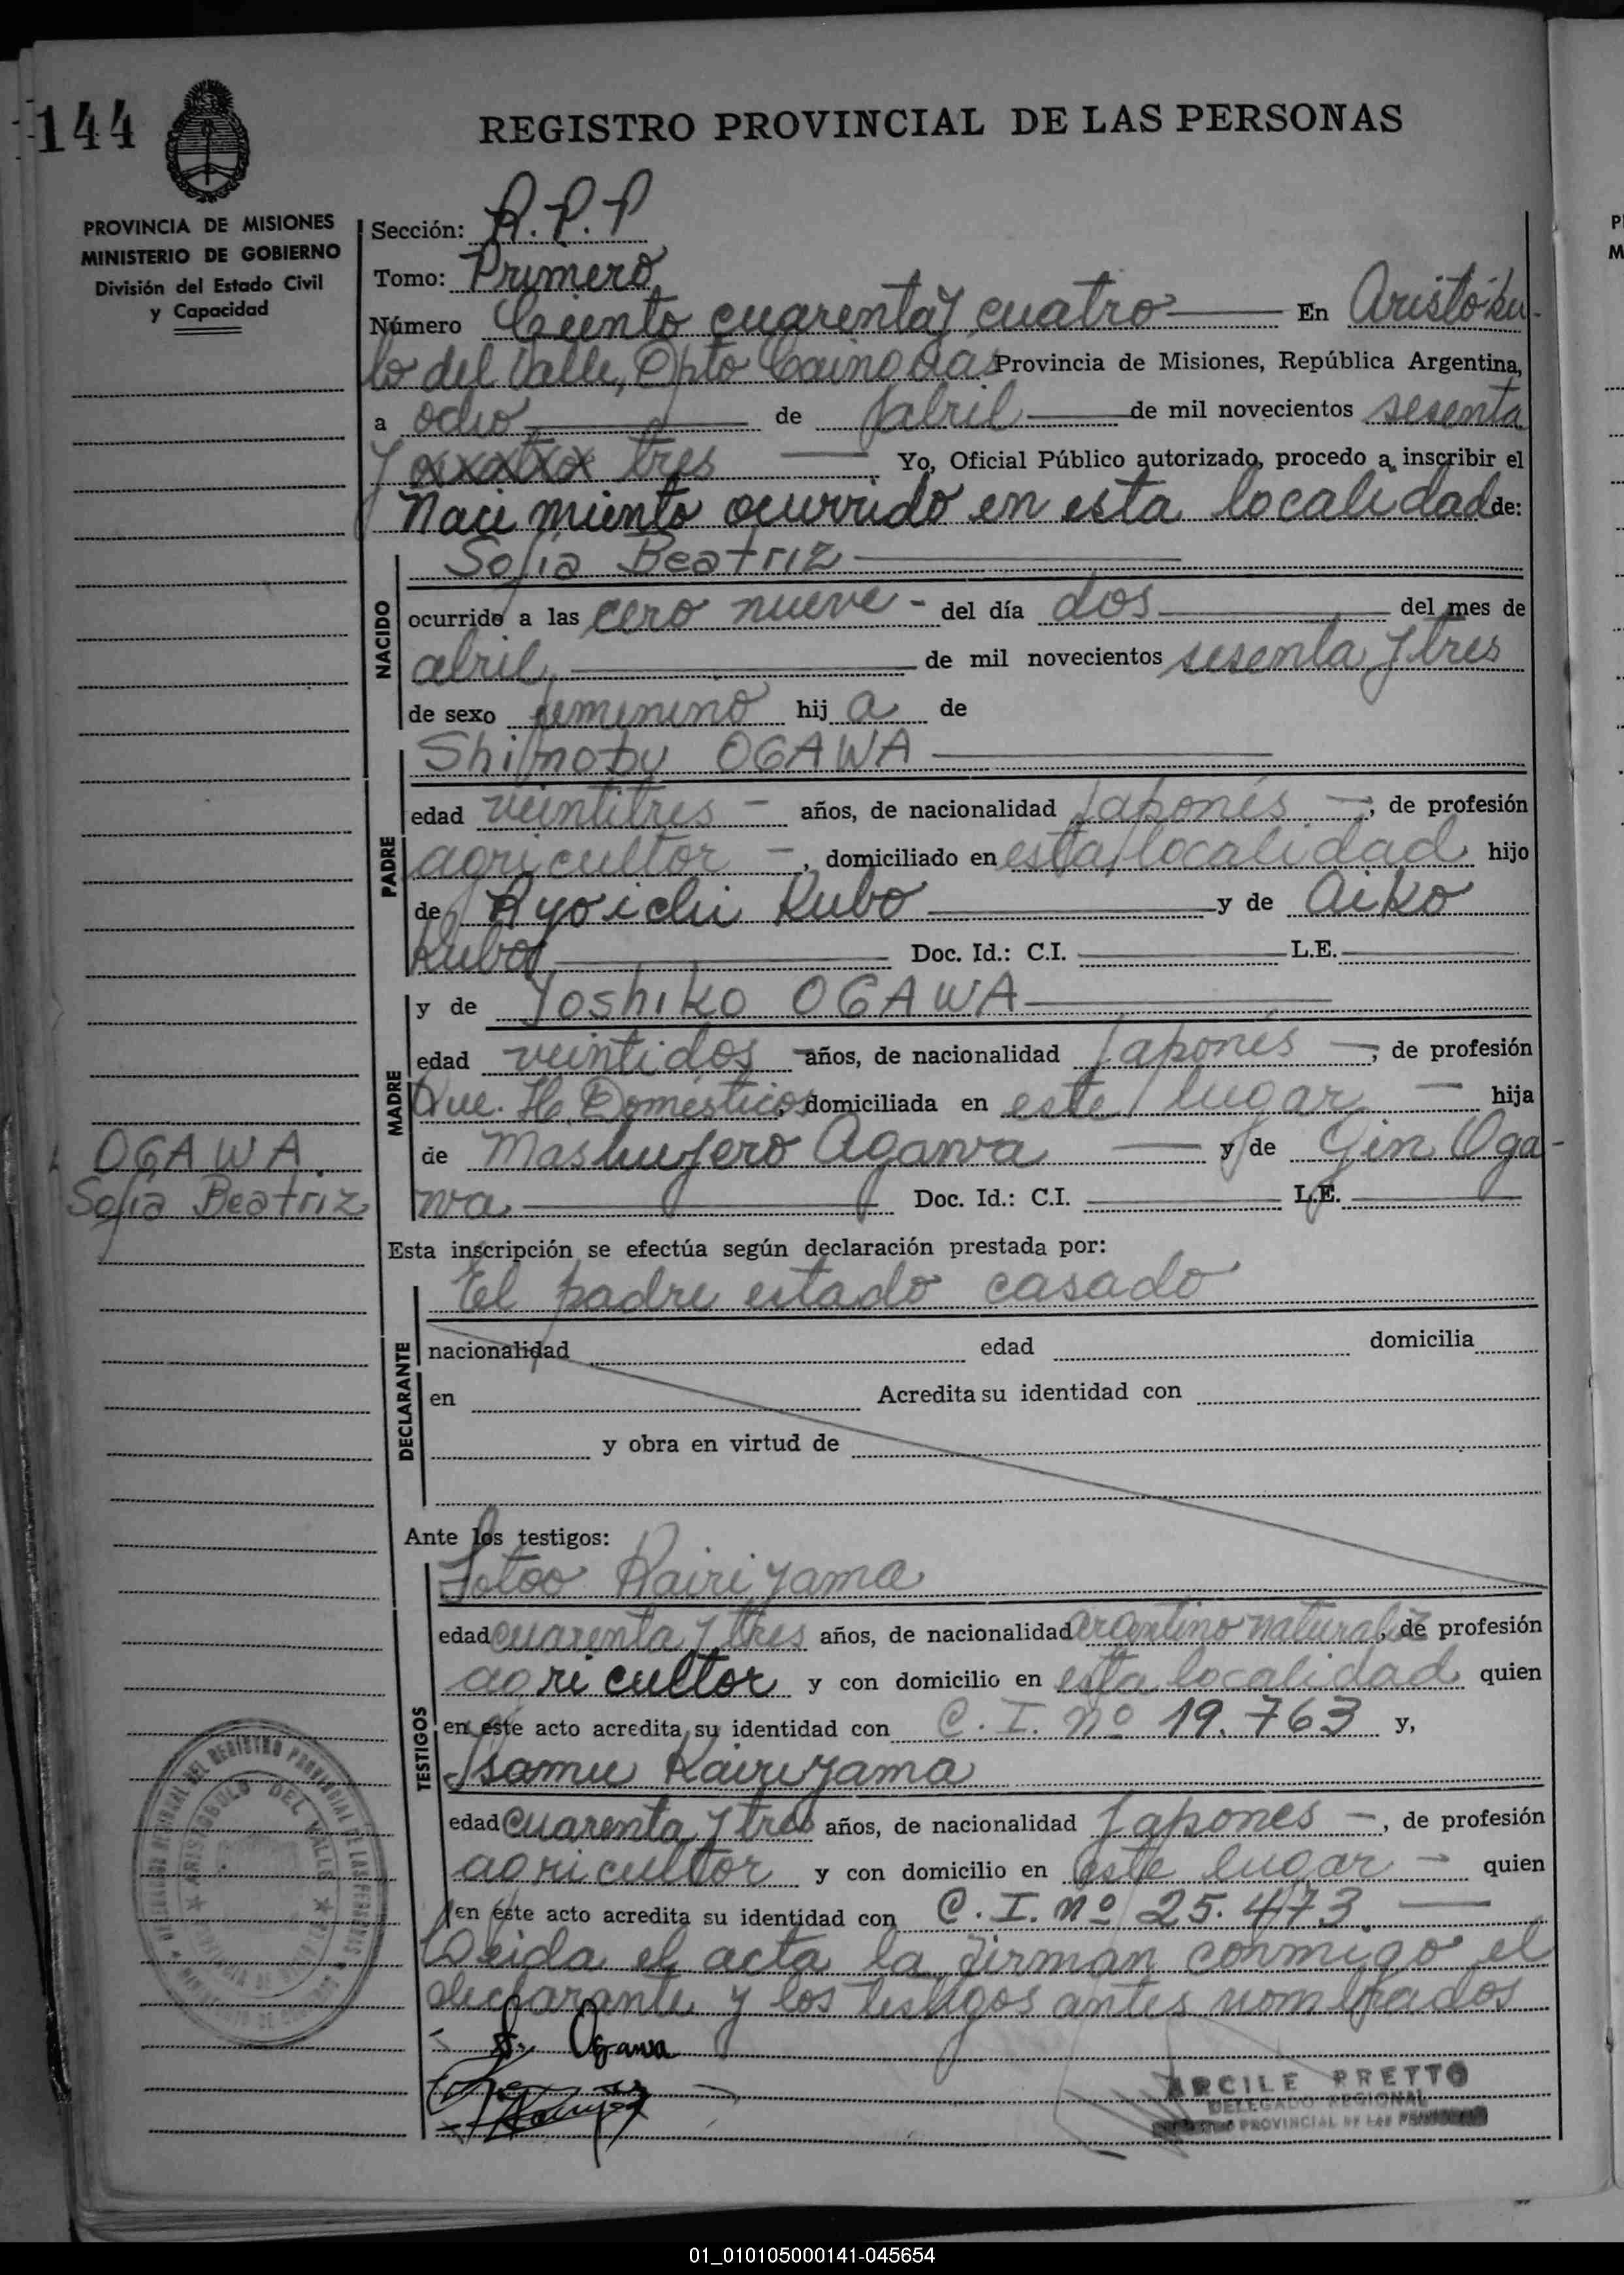 144
REGISTRO PROVINCIAL DE LAS PERSONAS
PROVINCIA DE MISIONES
MINISTERIO DE GOBIERNO
División del Estado Civil
y Capacidad
Sección: R.P.P
Tomo: Primero
Número Ciento cuarenta y cuatro En Aristóbu-
lo del Valle, Dpto Cainguás Provincia de Misiones, República Argentina,
a ocho de abril de mil novecientos sesenta
y tres Yo, Oficial Público autorizado, procedo a inscribir el
Nacimiento ocurrido en esta localidad de:
NACIDO
Sofia Beatriz
ocurrido a las cero nueve - del día dos del mes de
abril de mil novecientos sesenta y tres
de sexo femenino hij a de
PADRE
OGAWA
edad veintitres - años, de nacionalidad Japonés -, de profesión
agricultor -, domiciliado en esta localidad hijo
de Ryoichi Kubo y de Aiko
Kubo Doc. Id.: C.I. L.E.
MADRE
y de Yoshiko OGAWA
edad veintidos años, de nacionalidad Japonés -, de profesión
Que. H. Domésticos, domiciliada en este lugar - hija
de y de Gin Oga-
wa Doc. Id.: C.I. L.E.
OGAWA.
Sofia Beatriz
Esta inscripción se efectúa según declaración prestada por:
DECLARANTE
El padre estado casado
nacionalidad edad domicilia
en Acredita su identidad con
y obra en virtud de
Ante los testigos:
TESTIGOS
Kairiyama
edad cuarenta y tres años, de nacionalidad argentino naturaliz, de profesión
agricultor y con domicilio en esta localidad quien
en este acto acredita su identidad con C.I. nº 19.763 y,
Isamu Kairiyama
edad cuarenta y tres años, de nacionalidad Japones -, de profesión
agricultor y con domicilio en este lugar - quien
en este acto acredita su identidad con C.I. nº 25.473.
Leida el acta la firman conmigo el
declarante y los testigos antes nombrados
S. Ogawa
ARCILE PRETTO
DELEGADO REGIONAL
REGISTRO PROVINCIAL DE LAS PERSONAS
ARISTOBULO DEL VALLE
01_010105000141-045654